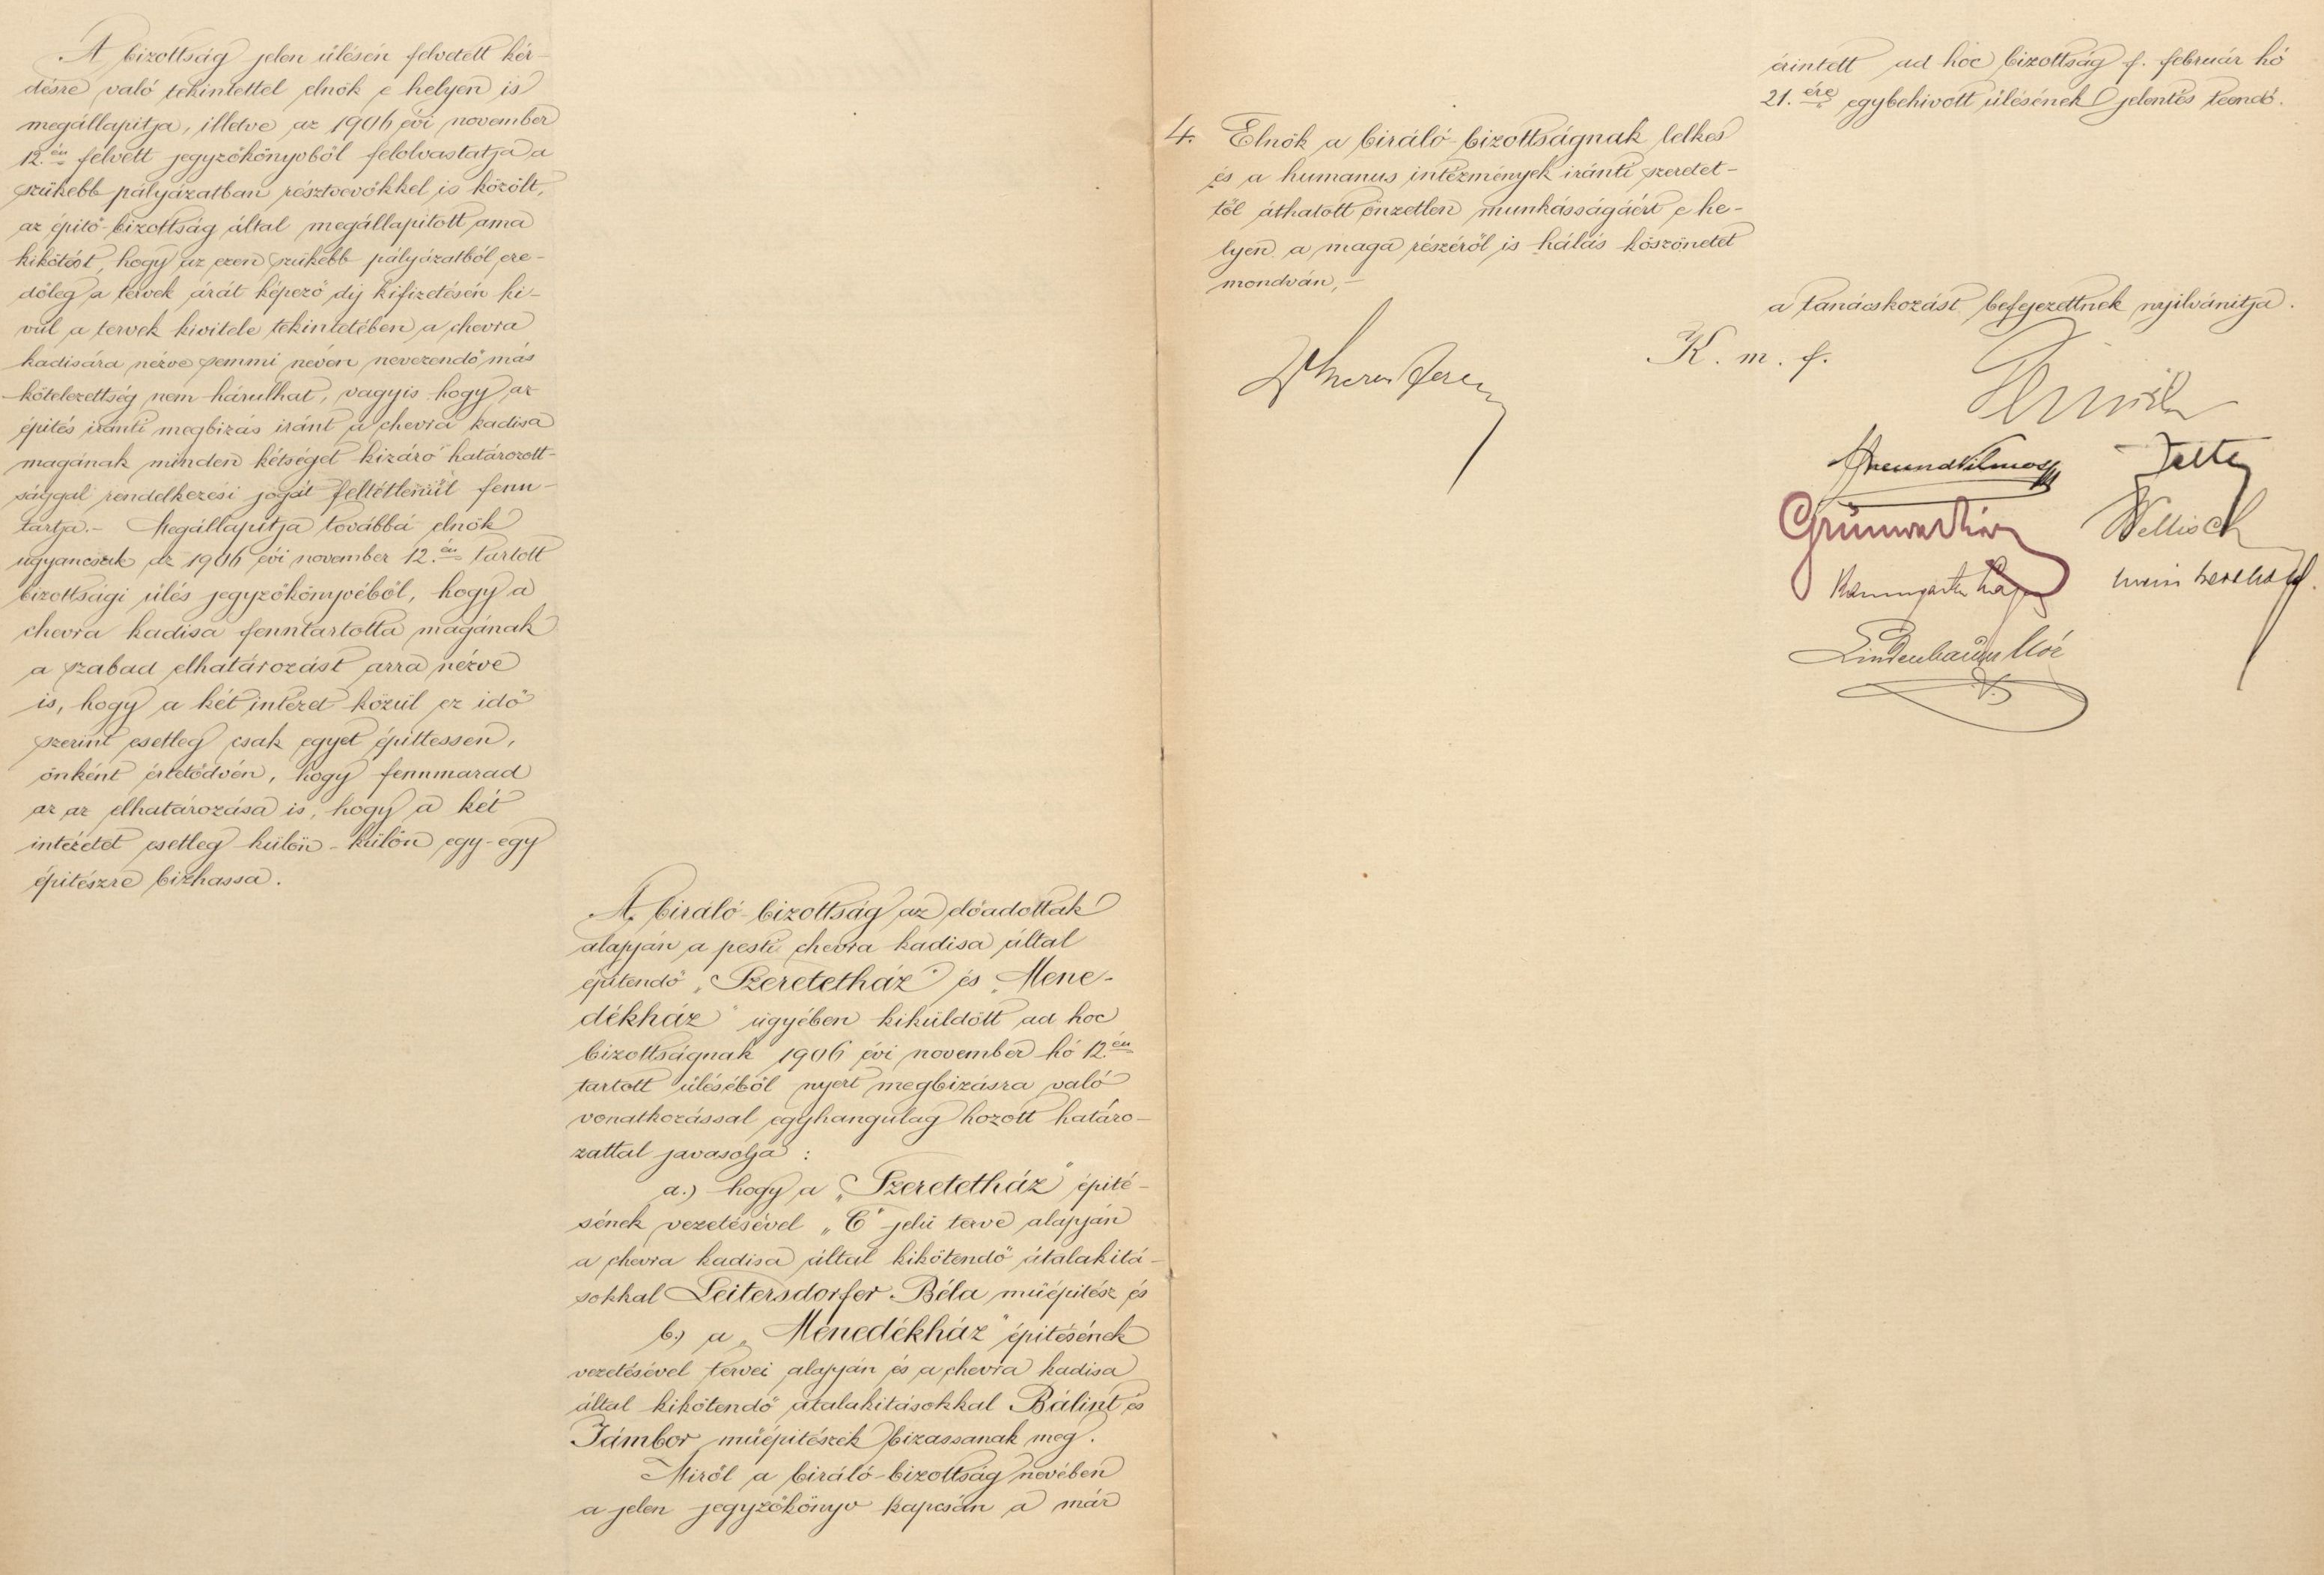 A bizottság jelen ülésén felvetett kér-
désre való tekintettel elnök e helyen is
megállapitja, illetve az 1906 évi november
12.én felvett jegyzőkönyvből felolvastatja a
szükebb pályázatban résztvevőkkel is közölt,
az épitő-bizottság által megállapitott ama
kikötést, hogy az ezen szükebb pályázatból ere-
dőleg a tervek árát képező dij kifizetésén ki-
vül a tervek kivitele tekintetében a chevra
kadisára nézve semmi néven nevezendő más
kötelezettség nem hárulhat, vagyis hogy az
épités iránti megbizás iránt a chevra kadisa
magának minden kétséget kizáró határozott-
sággal rendelkezési jogát feltétlenül fenn-
tartja.- Megállapitja továbbá elnök
ugyancsak az 1906 évi november 12.én tartott
bizottsági ülés jegyzőkönyvéből, hogy a
chevra kadisa fenntartotta magának
a szabad elhatározást arra nézve
is, hogy a két intézet közül ez idő
szerint esetleg csak egyet épittessen,
önként értetődvén, hogy fennmarad
az az elhatározása is, hogy a két
intézetet esetleg külön-külön egy-egy
épitészre bizhassa.
A biráló-bizottság az előadottak
alapján a pesti chevra kadisa által
épitendő „Szeretetház" és „Mene-
dékház" ügyében kiküldött ad hoc
bizottságnak 1906 évi november hó 12.én
tartott üléséből nyert megbizásra való
vonatkozással egyhangulag hozott határo-
zattal javasolja :
a.) hogy a „Szeretetház" épité-
sének vezetésével „C" jelü terve alapján
a chevra kadisa által kikötendő átalakitá-
sokkal Leitersdorfer Béla müépitész és
b.) a „Menedékház" épitésének
vezetésével tervei alapján és a chevra kadisa
által kikötendő átalakitásokkal Bálint és
Jámbor müépitészek bizassanak meg.
Miről a biráló-bizottság nevében
a jelen jegyzőkönyv kapcsán a már
érintett ad hoc bizottság f. február hó
21.ére egybehivott ülésének jelentés teendő.
4. Elnök a biráló-bizottságnak lelkes
és a humanus intézmények iránti szeretet-
től áthatott önzetlen munkásságáért e he-
lyen a maga részéről is hálás köszönetet
mondván, -
a tanácskozást befejezettnek nyilvánitja.
K. m. f.
Freund Vilmos
Wellisch
Lindenbaum Mór